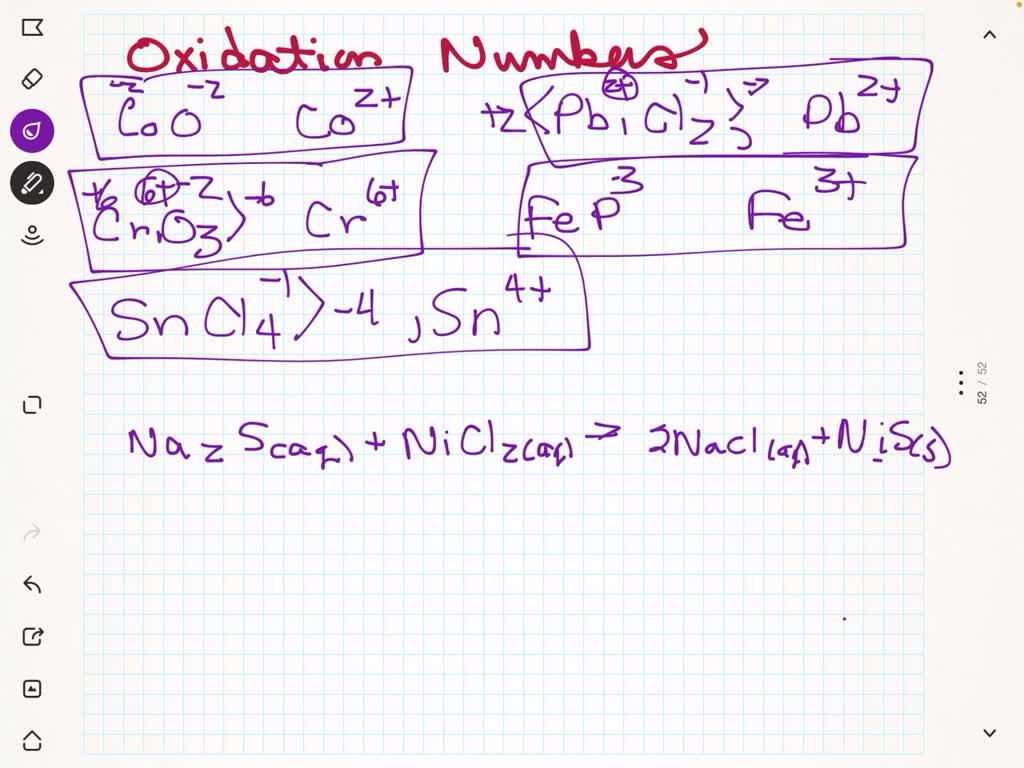 Oxidation Numbers
CoO⁻² Co²⁺
+2 Pb₁Cl₂ 2+ -1 Pb²⁺
+6 6+ -2
CrO₃ -6 Cr⁶⁺
FeP⁻³ Fe³⁺
SnCl₄⁻¹ -4, Sn⁴⁺
Na₂S(aq) + NiCl₂(aq) → 2NaCl(aq) + NiS(s)
52 / 52